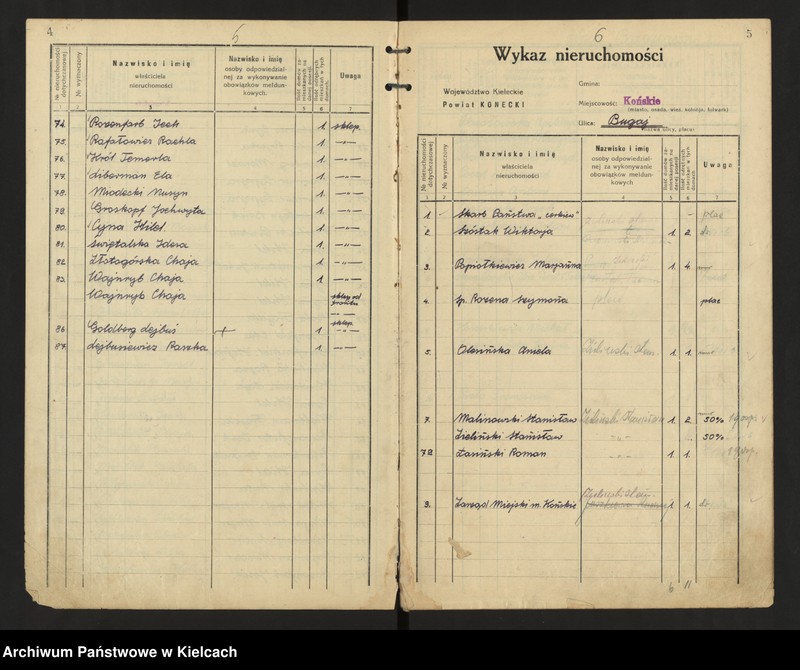 4
5
Nr nieruchomości dotychczasowej
Nr wymazany
Nazwisko i imię
właściciela
nieruchomości
Nazwisko i imię
osoby odpowiedzial-
nej za wykonywanie
obowiązków meldun-
kowych.
Uwaga
1 2 3 4 5 6 7
74. Rozenfarb Icek 1 sklep.
75. Rafałowicz Rachla 1 —„—
76. Król Temerla 1. —„—
77. Liberman Ela 1 —„—
78. Miodecki Nusyn 1 —„—
79. Groskopf Jochwyta 1. —„—
80. Cyna Hilel 1 —„—
81. Świętalska Idesa 1. —„—
82. Złotogórska Chaja 1 —„—
83. Wajnryb Chaja 1 —„—
Wajnryb Chaja sklep od frontu
—„—
sklep.
86. Goldberg Lejbuś + 1 —„—
87. Lejbusiewicz Raszka 1. —„—
6
5
Wykaz nieruchomości
Województwo Kieleckie
Powiat KONECKI
Gmina:
Miejscowość: Końskie
(miasto, osada, wieś, kolonja, folwark)
Ulica: Bugaj
(nazwa ulicy, placu)
Nr nieruchomości dotychczasowej
Nr wymazany
Nazwisko i imię
właściciela
nieruchomości
Nazwisko i imię
osoby odpowiedzial-
nej za wykonywanie
obowiązków meldun-
kowych
Uwaga
1 2 3 4 5 6 7
1. Skarb Państwa „cerkiew" — plac
2. Szóstak Wiktorja 1. 2. dr.
3. Popiołkiewicz Marjanna 1 4.
4. Sp. Rozena Szymona plac
5. Olesińska Aniela 1. 1.
7. Malinowski Stanisław 1. 2. 50%
Zieliński Stanisław —„— 50%
7a Łasiński Roman —„— 1. 1.
9. Zarząd Miejski m. Końskie 1 1. dr.
6 11
Archiwum Państwowe w Kielcach